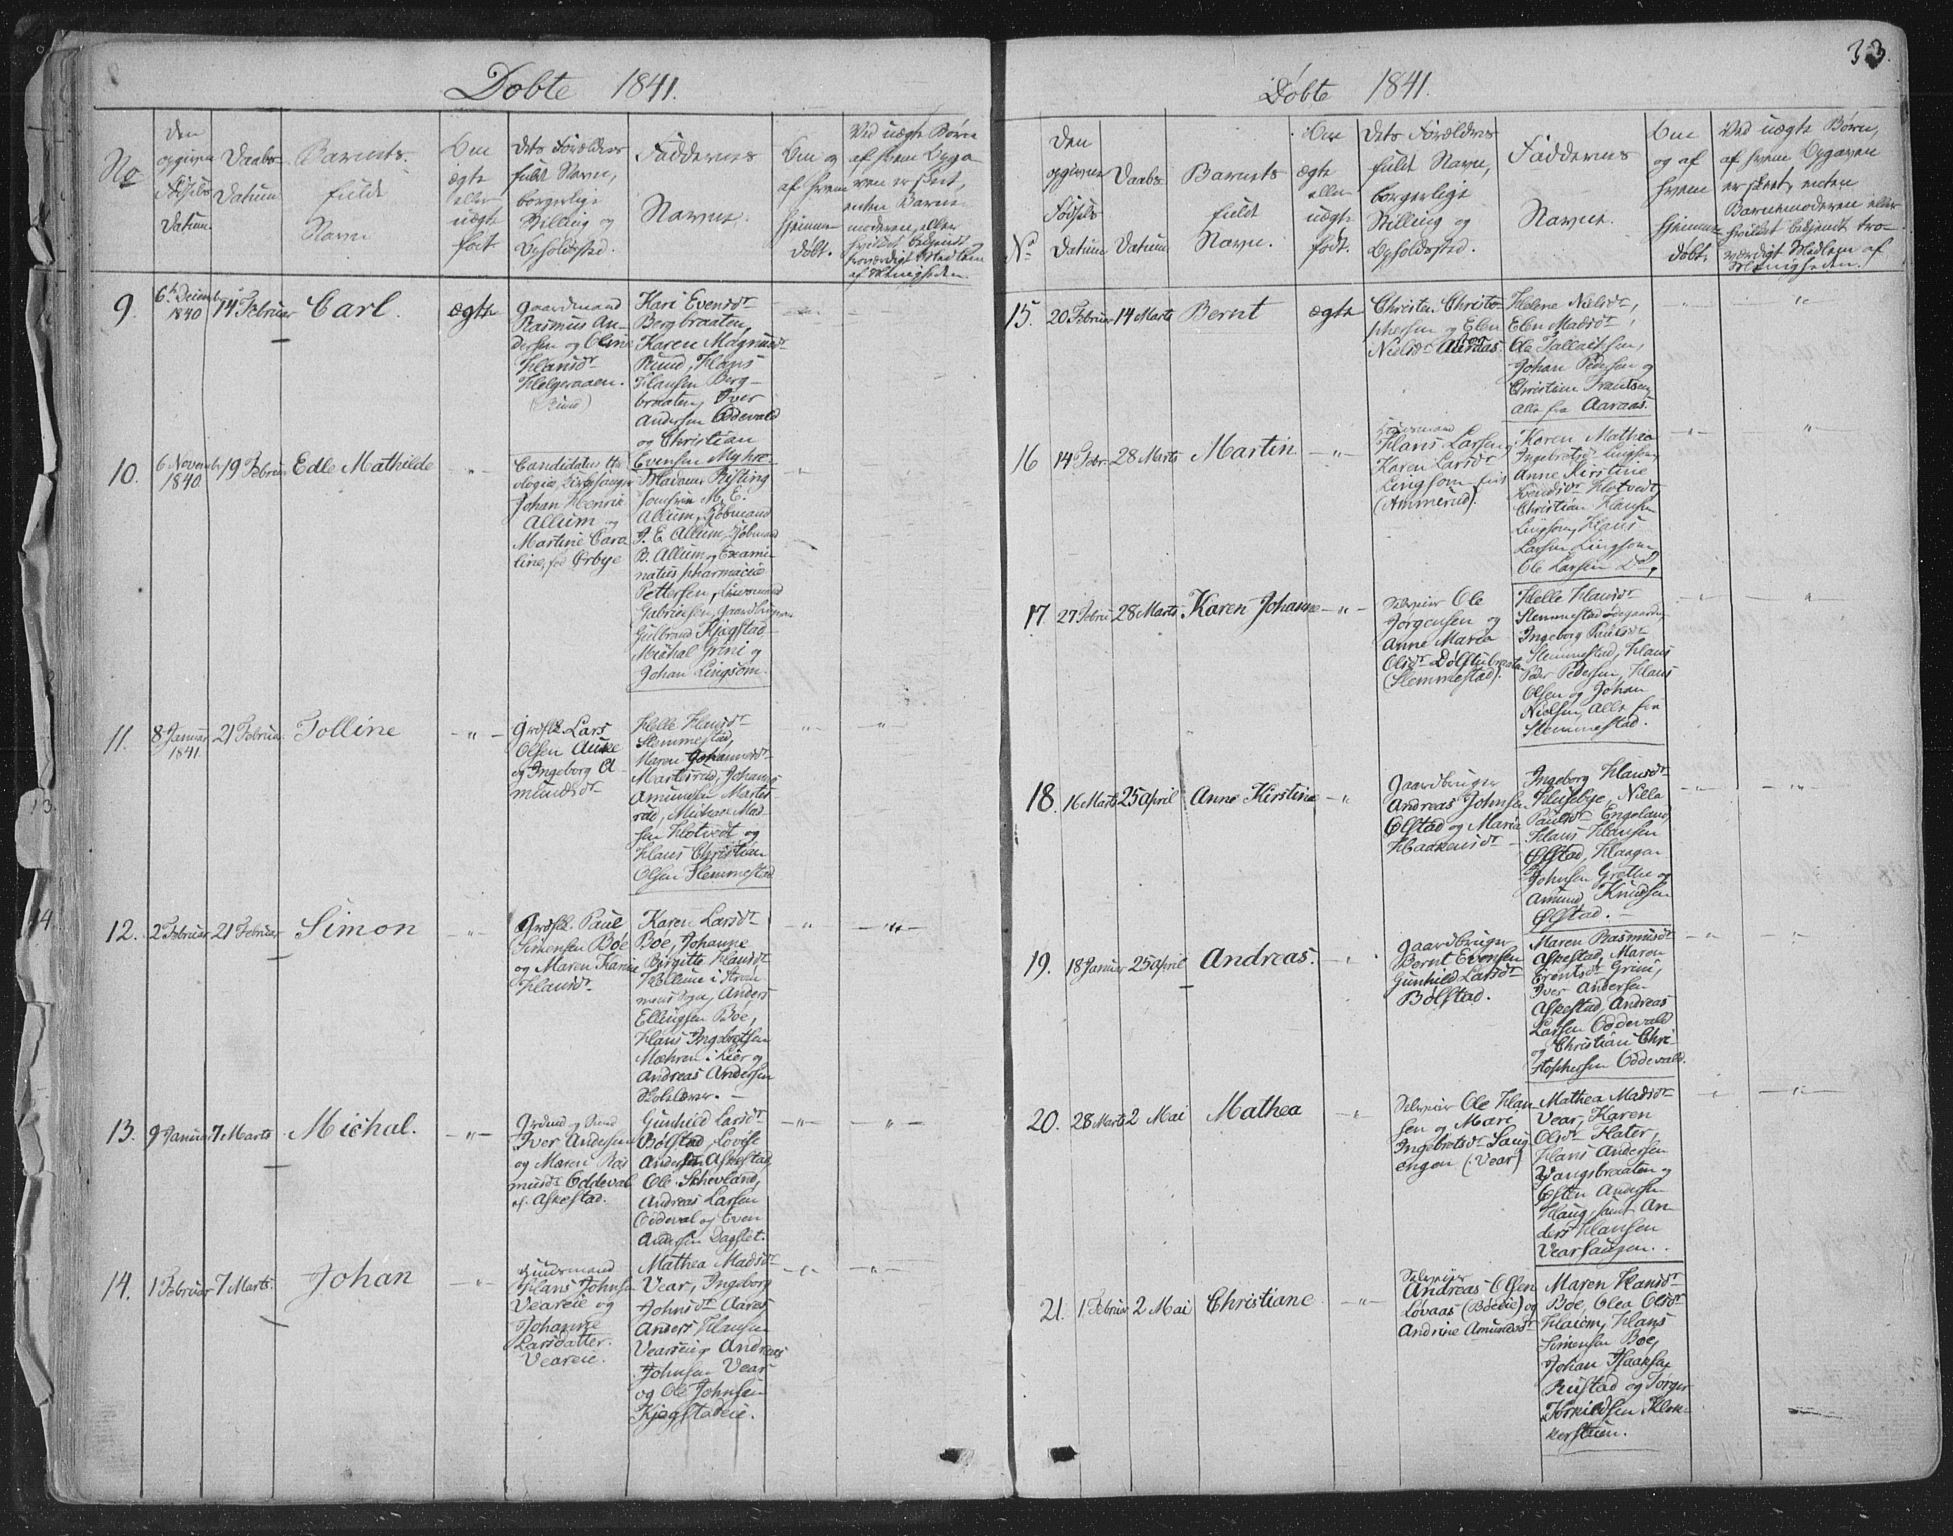 Døbte 1841.
No
Den
opgivne
Fødsels
Datum
Daabs
Datum
Barnets
fulde
Navn
Om
ægte
eller
uægte
født
Dets Forældres
fulde Navn,
borgerlige
Stilling og
Opholdssted.
Faddernes
Navne.
Om og
af hvem
hjemme
døbt.
Ved uægte Børn
af hvem Opga-
ven er skeet,
enten Barne-
moderen, eller
hvilket bekjendt
troværdigt Medlem
af Menigheden.
9.
6te Decemb
1840
14 Februar
Carl.
ægte
Gaardmand
Rasmus An-
dersen og Oline
Hansdr
Helgeraaen.
(Rund)
Kari Evensdr
Bergbraaten,
Karen Magnusdr
Rund, Hans
Hansen Berg-
braaten, Iver
Andersen Oddevald
og Christian
Evensen Myhre
10.
6 Novemb
1840
19 Februar
Edle Mathilde
Candidatus the
ologiæ, Kirkesanger
Johan Henrik
Allum og
Martine Caro
line, fød Ørbye
Madame Risting
Jomfru M. C.
Allum, Kjøbmand
P. E. Allum, Kjøbmand
B. Allum, Exami-
natus pharmaciæ
Pettersen,
Gabrielsen, Gaardbrugerne
Gulbrand Kjøgstad
Michal Grini og
Johan Lingsom.
11.
8 Januar
1841.
21 Februar
Tolline
Grdflk. Lars
Olsen Auke
og Ingeborg A-
mundsdr
Helle Hansdr
Slemmestad,
Maren Johannesdr
Martesrud, Johannes
Amundsen Martes
rud, Michael Mad-
sen Hotvedt og
Hans Christian
Olsen Slemmestad
12.
2 Februar
21 Februar
Simon
Grdflk. Paul
Simensen Bøe
og Maren Karine
Hansdr
Karen Larsdr
Bøe, Johanne
Birgitte Hansdr
Hellum i Strøm
mens Sogn, Anders
Ellingsen Boe,
Hans Ingebretsen
Mæhren i Lier og
Andreas Andersen
Skolelærer.
13.
9 Januar
7 Marts
Michal.
Iver Andersen
og Maren Ras
musdr Oddeval
af Askestad.
Gunhild Larsdr
Bølstad, Lovise
Andersdr Askestad,
Ole Skhovland,
Andreas Larsen
Oddeval og Even
Andersen Dagslet.
14.
1 Februar
7 Marts.
Johan
Huusmand
Hans Johnsen
Veareie og
Johanne
Larsdatter.
Veareie.
Mathea Madsdr
Vear, Ingeborg
Johnsdr Aares
Anders Hansen
Veareeie, Andreas
Johnsen Vear
og Ole Johnsen
Kjøgstadeie.
33.
Døbte 1841.
No
Den
opgivne
Fødsels
Datum
Daabs
Datum
Barnets
fulde
Navn.
Om
ægte
eller
uægte
født.
Dets Forældres
fulde Navn,
borgerlige
Stilling og
Opholdssted.
Faddernes
Navne.
Om
og af
hvem
hjemme
døbt.
Ved uægte Børn,
af hvem Opgaven
er skeet, enten
Barnemoderen eller
hvilket bekjendt tro-
værdigt Medlem af
Menigheden.
15.
20 Februar
14 Marts
Bernt
ægte
Christen Christo-
phersen og Elen
Nielsdr Aaraas.
Helene Nielsdr,
Elen Madsdr,
Ole Tallaksen,
Johan Pedersen og
Christian Frantsen,
alle fra Aaraas.
16
14 Febr.
28 Marts
Martin
Huusmand
Hans Larsen og
Karen Larsdr
Lingsom
(Ammerud).
Karen Mathea
Ingebretsdr Lingsom,
Anne Kirstine
Hotvedt,
Christian Hansen
Lingsom, Hans
Larsen Lingsom
Ole Larsen Do,
17.
27 Febru
28 Marts
Karen Johanne
Selveier Ole
Jørgensen og
Anne Maria
Olsdr Dølstubraaten
(Slemmestad).
Helle Hansdr
Slemmestad ødegaarden,
Ingeborg Paulsdr
Slemmestad, Hans
Peder Pedersen, Hans
Olsen og Johan
Nielsen, alle fra
Slemmestad.
18.
16 Marts
25 April
Anne Kirstine
Gaardbruger
Andreas Johnsen
Ølstad og Maria
Haakensdr
Ingeborg Hansdr
Husebye, Nilla
Paulsdr Engeland,
Hans Hansen
Ølstad, Haagen
Johnsen Grøtte og
Amund Knudsen
Ølstad.
19.
18 Januar
25 April
Andreas.
Gaardbruger
Bernt Evensen
Gunhild Larsdr
Bølstad.
Maren Rasmusdr
Askestad, Maren
Erentsdr Grini,
Iver Andersen
Askestad, Andreas
Larsen Oddevald
og Christian Chri-
stophersen Oddevald.
20.
28 Marts
2 Mai
Mathea
Selveier Ole Han-
sen og Mari
Ingebretsdr Saug-
engen (Vear)
Mathea Madsdr
Vear, Karen
Olsdr Hater,
Hans Andersen
Vangsbraaten og
Østen Andersen
Haug, samt An-
ders Hansen
Vearsaugen.
21.
1 Februar
2 Mai
Christiane
Selveier
Andreas Olsen
Løvaas (Bøeeie) og
Andrine Amundsdr
Maren Hansdr
Boe, Olea Olsdr
Haiem, Hans
Simensen Boe,
Johan Isaaksen
Rustad og Torger
Torkildsen Klok-
kerstuen.